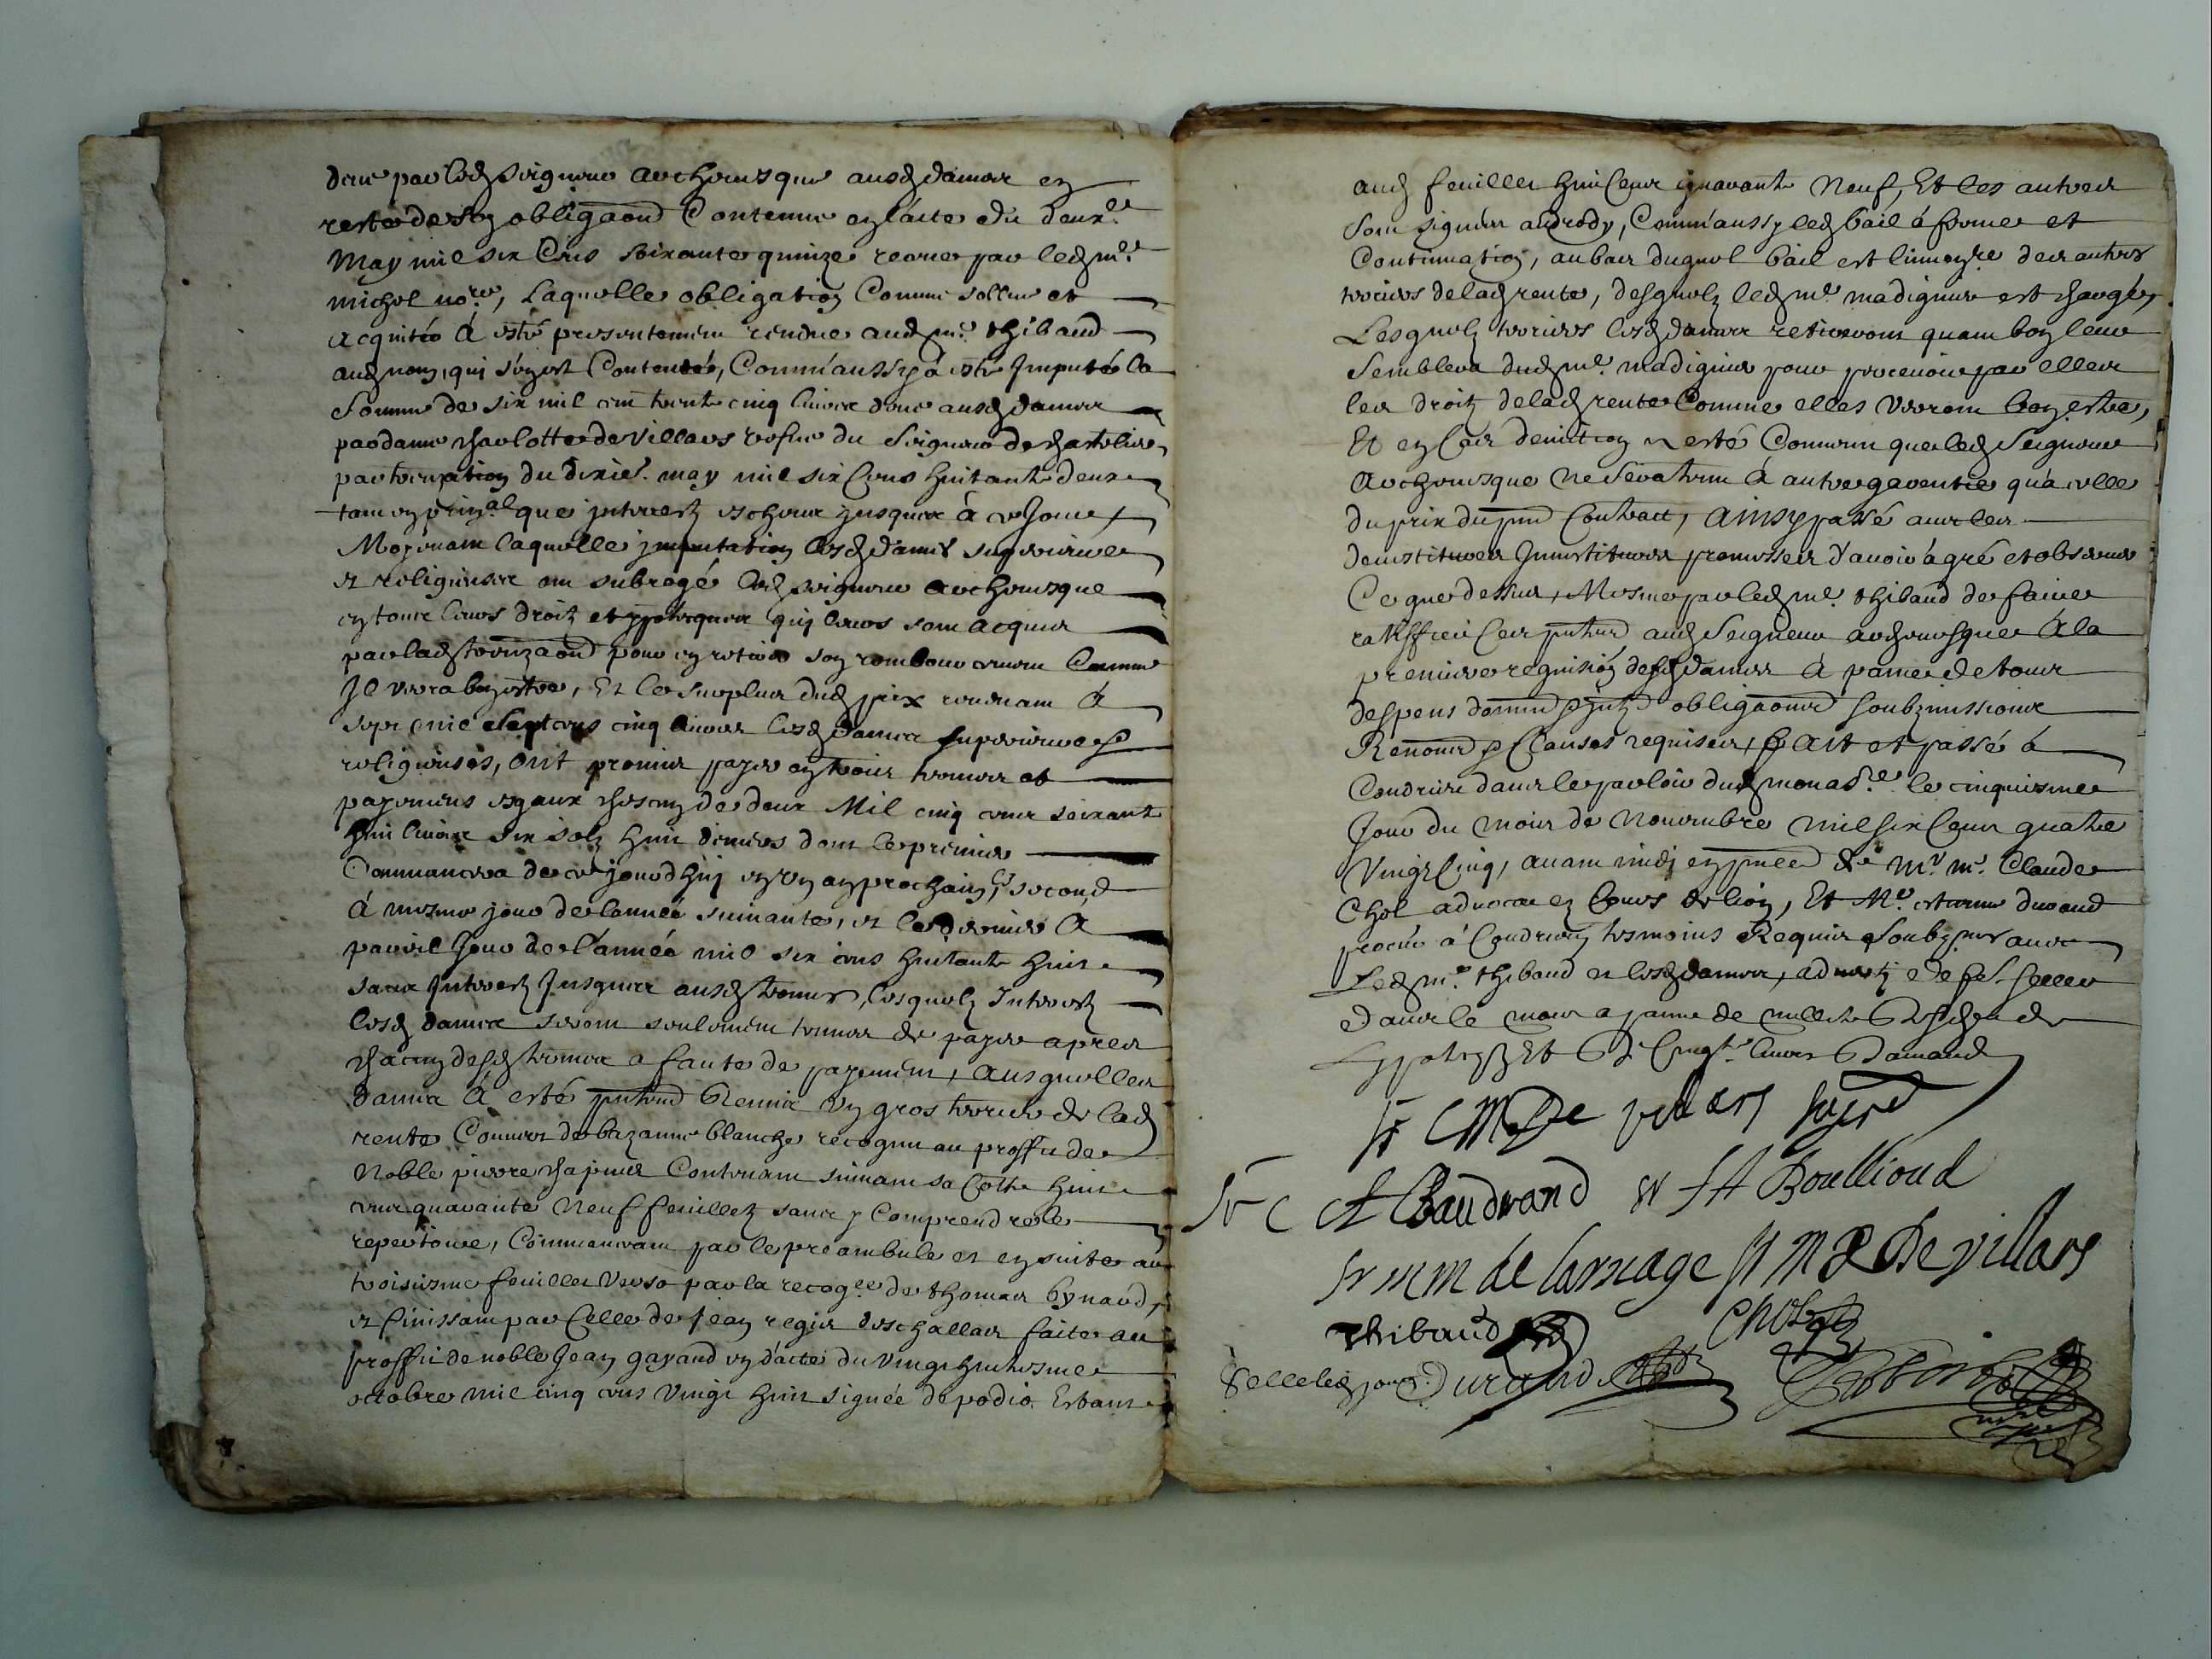 deue par led seigneur archevesque ausd dames en
reste de son obligaond contenue en lacte du deux.e
May mil six cens soixante quinze receue par led m.e
michel no.re, Laquelle obligation Comme sollue et
acquitée à esté presentement rendue aud m.e thibaud
aud nom, qui s'en est Contenté, Comm'aussy à esté Imputée la
somme de six mil cent trente cinq livres deue ausd dames
par dame charlotte de Villars vefve du seigneur de
par du dixie. may mil six Cens huitante deux
tant en prin.al que interestz escheux jusques à ce Jour,
Moyenant laquelle imputation lesd dames superieure
et religieuses ont subrogé led seigneur archevesque
en tous leurs droitz et ypotecques qui leurs sont acquis
par lad pour en retirer son remboursement Comme
Il verra bon estre, Et le surplus dud prix revenant à
sept mil sept cens cinq livres lesd dames superieure &
religieuses, ont promis payer en trois termes et
payemens esgaux chescung de deux Mil cinq cens soixante
huit livres six solz huit deniers dont le premier
Commancera de ce jourdhuy en un an prochain, le second
à mesme jour de lannée suivante, et le dernier à
pareil Jour de l'année mil six cens huitante huit
sans Interestz Jusques ausd termes, lesquelz Interestz
lesd dames seront seulement tenues de payer apres
chacung desd termes a faute de payement, ausquelles
dames à esté remis un gros terrier de lad
rente Couvert de bazanne blanche recogneu au proffit de
Noble pierre Contenant suivant sa Cotte huit
cens quarante Neuf feuilletz sans y Comprendre le
repertoire, Commancant par le preambule et en suite au
troisiesme feuillet verso par la recog.ce de thomas bynaud,
et finissant par Celle de Jean regis deschallas faite au
proffit de noble Jean gayand en d'acte du Vingt huitiesme
octobre mil cinq cens vingt huit signée depodio. Estant
aud feuillet huit Cens quarante Neuf, Et les autres
sont signées, Comm'aussy led bail à ferme et
Continuation, au bas duquel bail est linven.re des autres
terriers de lad rente, desquelz led m.e madignier est chargé,
Lesquelz terriers lesd dames retireront quant bon leur
semblera dud m.e madignier pour percevoir par elles
les droitz de lad rente Comme elles verront bon estre,
Et en cas deviction a esté Convenu que led Seigneur
Archevesque Ne sera tenu à autre garentie qu'à celle
du prix du pnt Contract, ainsy passé avec les
devestitures Investitures promesses d'avoir à gré et observer
Ce que dessus, Mesme par led m.e thibaud de faire
rattiffier Ces pntes aud Seigneur archevesque à la
premiere requisiōn desd dames à paine de tous
despens obligaons soubzmissions
Renonnd & Clauses requises, fait et passé à
Condrieu dans le parloir dud monas.re le cinquiesme
Jour du mois de Novembre mil six Cens quatre
Vingt Cinq, avant midi en pnce de M.r m.e Claude
Chol advocat ez Cours de lion, Et M.e estienne durand
procur à Condrieu tesmoins Requis soubznes avec
Led m.e thibaud et lesd dames, advertis de fe. seeller
dans le mois a paine de nullité
Et livres Damande
Sr C M De villars supre
Sr C A Baudrand Sr f A Boullioud
Sr m m de larnage Sr M De villars
Thibaud Chol
Durand